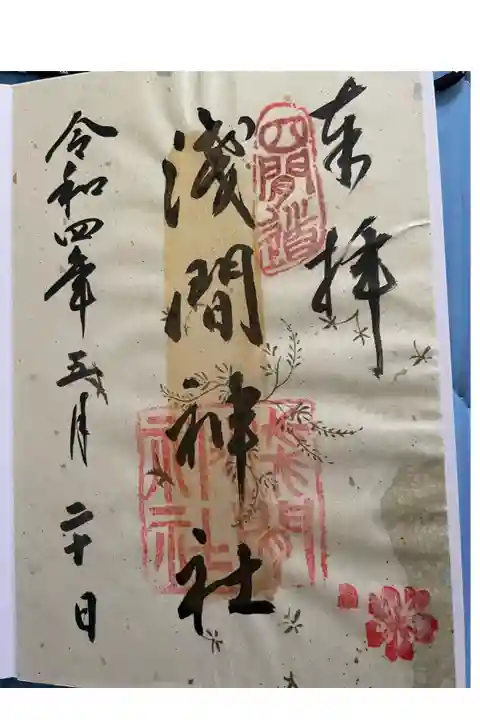 奉拝
四間道
淺間神社
令和四年五月二十日